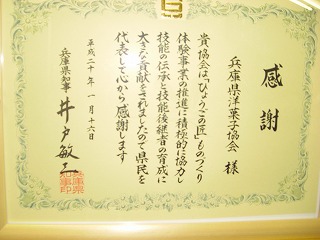 感謝
兵庫県洋菓子協会 様
貴協会は「ひょうごの匠」ものづくり
体験事業の推進に積極的に協力し
技能の伝承と技能後継者の育成に
大きな貢献をされましたので県民を
代表して心から感謝します
平成二十年一月十六日
兵庫県知事 井戸敏三